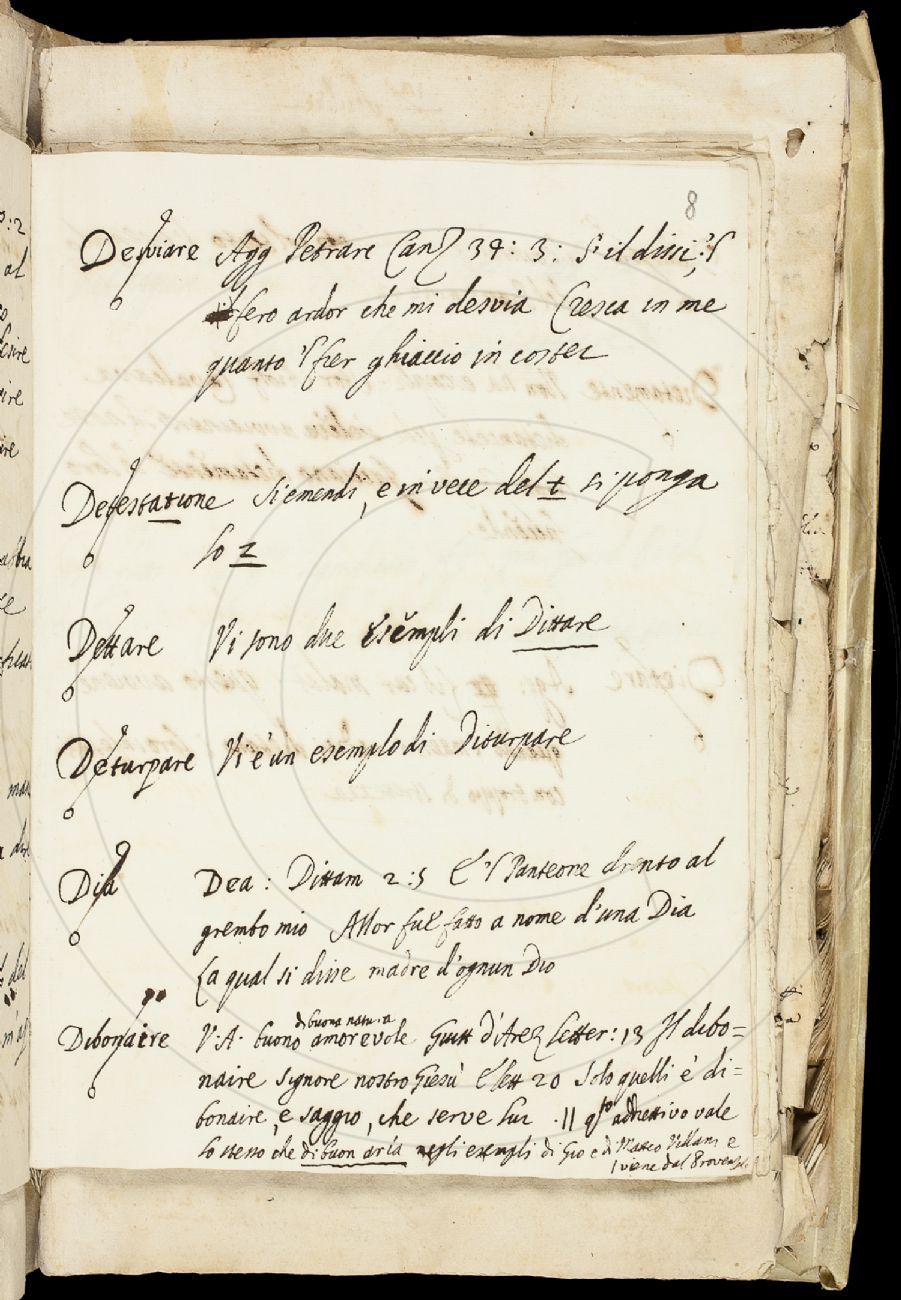 8
Desviare Agg Petrarc Canz 34: 3: S'il dissi, 'l
fero ardor che mi desvia Cresca in me
quanto 'l fier ghiaccio in costei
Detestatione si emendi, e in vece del t si ponga
lo z
Dettare Vi sono due esempli di Dittare
Deturpare Vi è un esemplo di Diturpare
Dia Dea: Dittam 2:5 E 'l Panteone drento al
grembo mio Allor fue fatto a nome d'una Dia
La qual si disse madre d'ognun Dio
di buona natura
Dibonaire V.A. buono amorevole Guitt d'Arez Letter: 13 Il dibo=
naire signore nostro Giesù E lett 20 Solo quelli è di=
bonaire, e saggio, che serve lui .|| qto adiettivo vale
lo stesso che di buon aria negli esempli di Gio e di Matteo Villani e
viene dal Provenzal